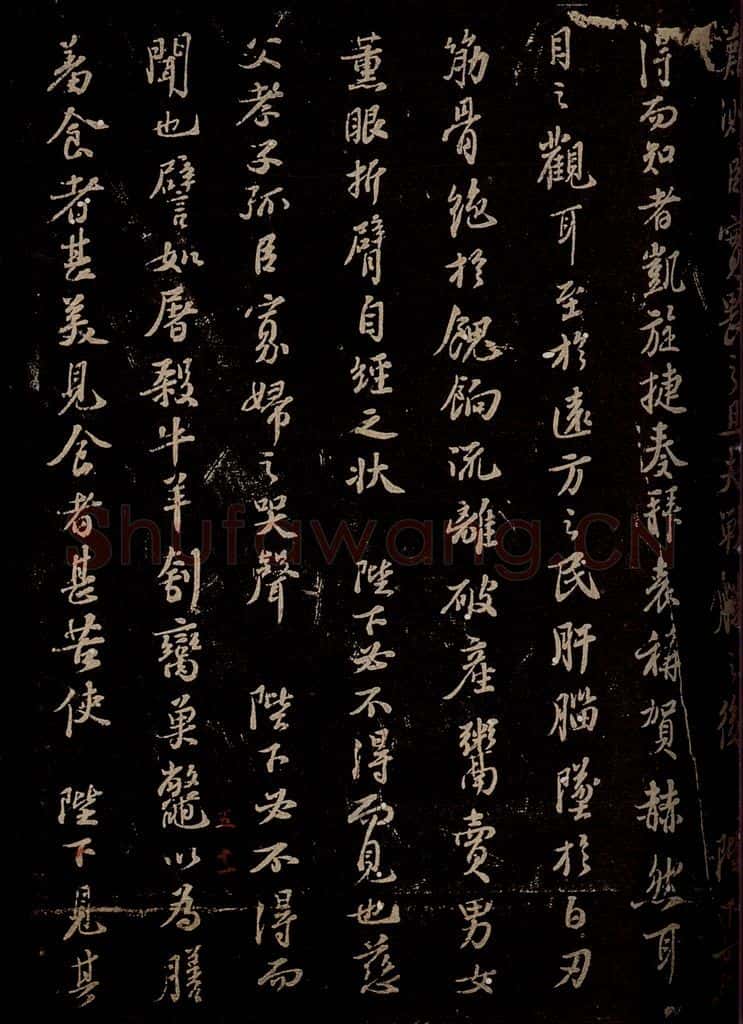 難測臣實畏之且夫戰勝之後 陛下可
得而知者凱旋捷奏拜表稱賀赫然耳
目之觀耳至於遠方之民肝腦墜於白刃
筋骨絶於餽餉流離破産鬻賣男女
薰眼折臂自經之狀 陛下必不得而見也慈
父孝子孤臣寡婦之哭聲 陛下必不得而
聞也譬如屠殺牛羊刳臠魚鼈以為膳
羞食者甚美見食者甚苦使 陛下見其
五 十一
Shufawang.CN